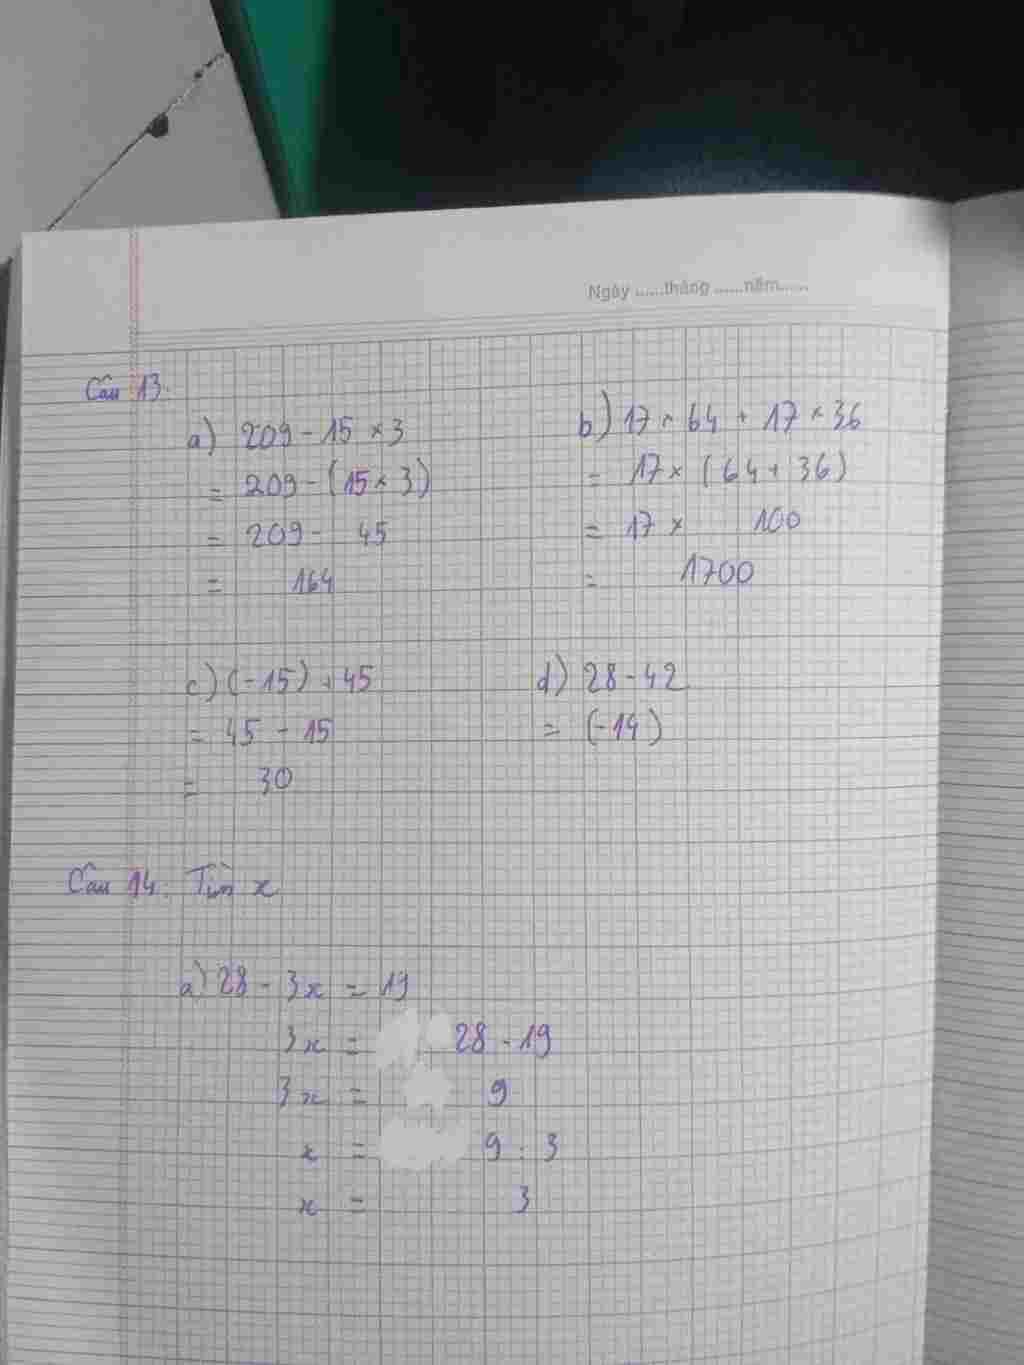 Ngày ......tháng ......năm......
Câu 13.
a) 209 - 15 × 3
= 209 - (15 × 3)
= 209 - 45
= 164
b) 17 × 64 + 17 × 36
= 17 × (64 + 36)
= 17 × 100
= 1700
c) (-15) + 45
= 45 - 15
= 30
d) 28 - 42
= (-14)
Câu 14: Tìm x
a) 28 - 3x = 19
3x = 28 - 19
3x = 9
x = 9 : 3
x = 3